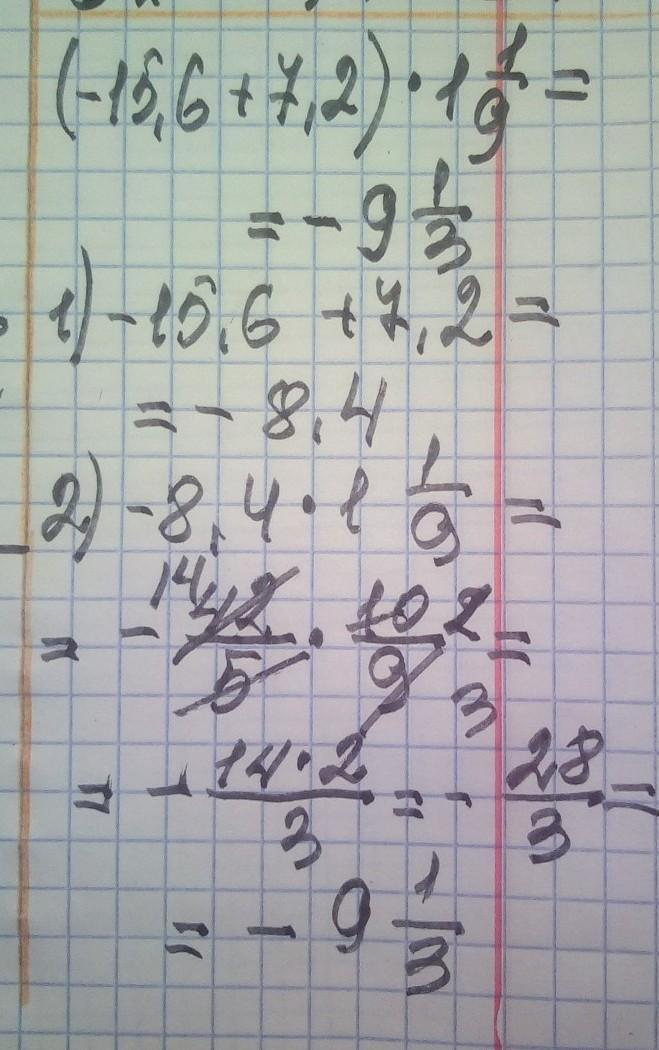 (-15,6+7,2)·1 1/9=
=-9 1/3
1) -15,6 +7,2=
=-8,4
2) -8,4·1 1/9=
=- 14 42/5 · 10/9 2 3=
=- 14·2/3=- 28/3=
=-9 1/3